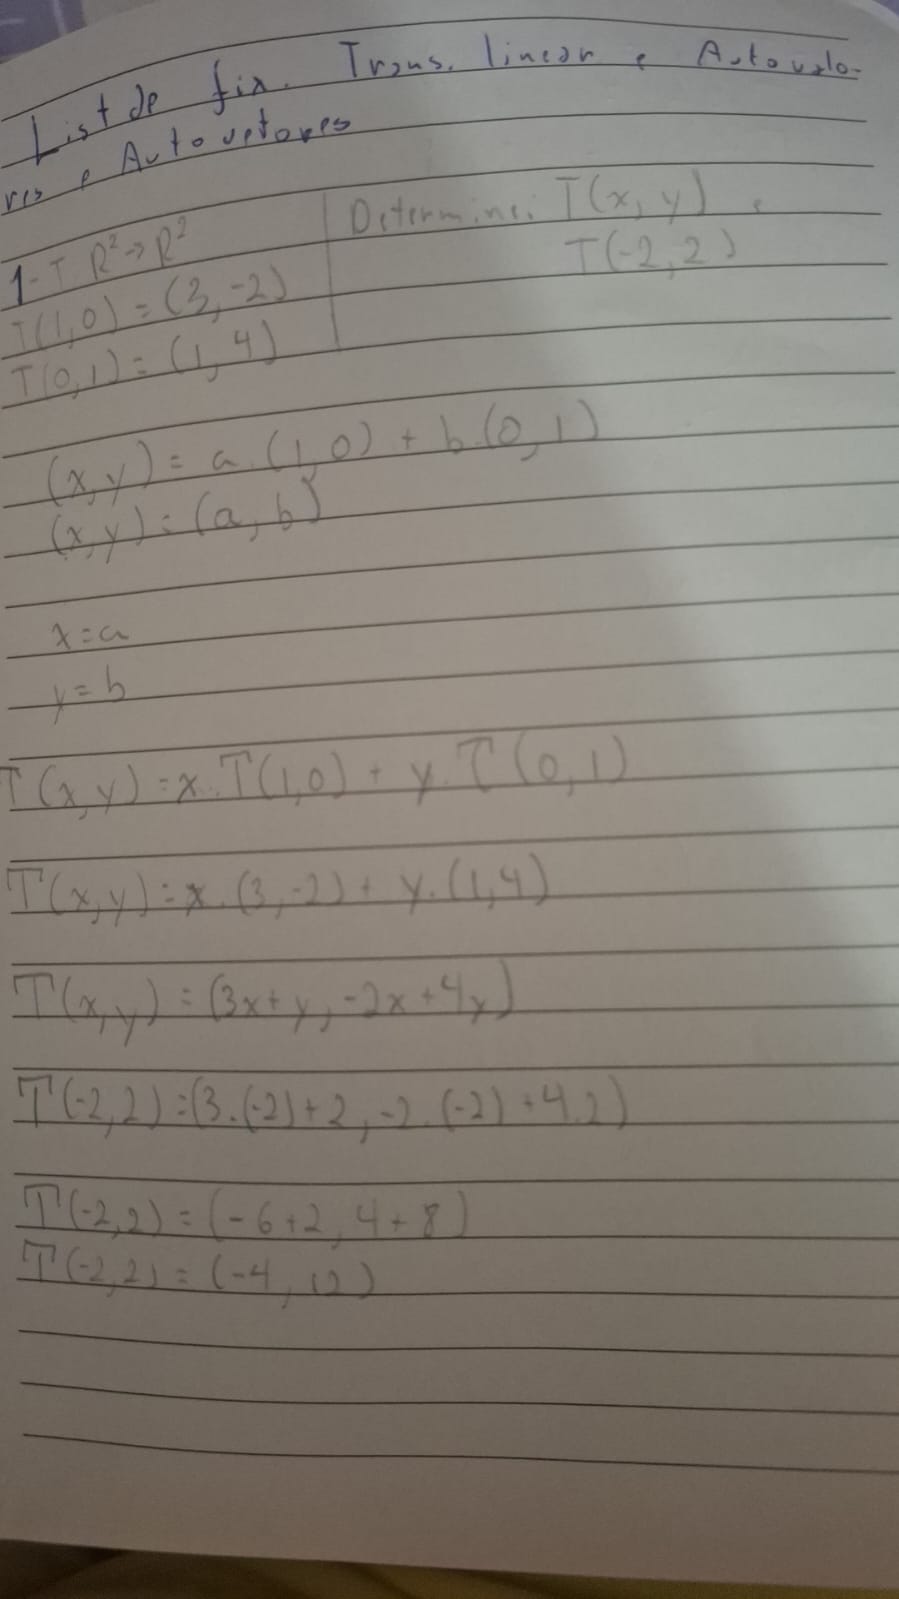 List de fix. Trans. linear e Autovalo-
res e Autovetores
1- T R²→R²
T(1,0) = (3,-2)
T(0,1) = (1,4)
Determine: T(x,y) e
T(-2,2)
(x,y) = a.(1,0) + b.(0,1)
(x,y) = (a,b)
x=a
y=b
T(x,y) = x.T(1,0) + y.T(0,1)
T(x,y) = x.(3,-2) + y.(1,4)
T(x,y) = (3x+y, -2x+4y)
T(-2,2) = (3.(-2)+2, -2.(-2)+4.2)
T(-2,2) = (-6+2, 4+8)
T(-2,2) = (-4, 12)